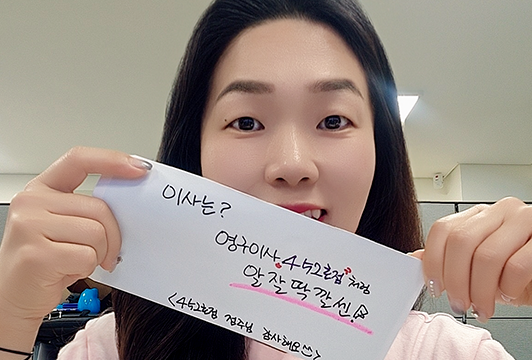 이사는?
영구이사 452호점처럼
알잘딱깔센!
<452호점 점주님 감사해요^^>